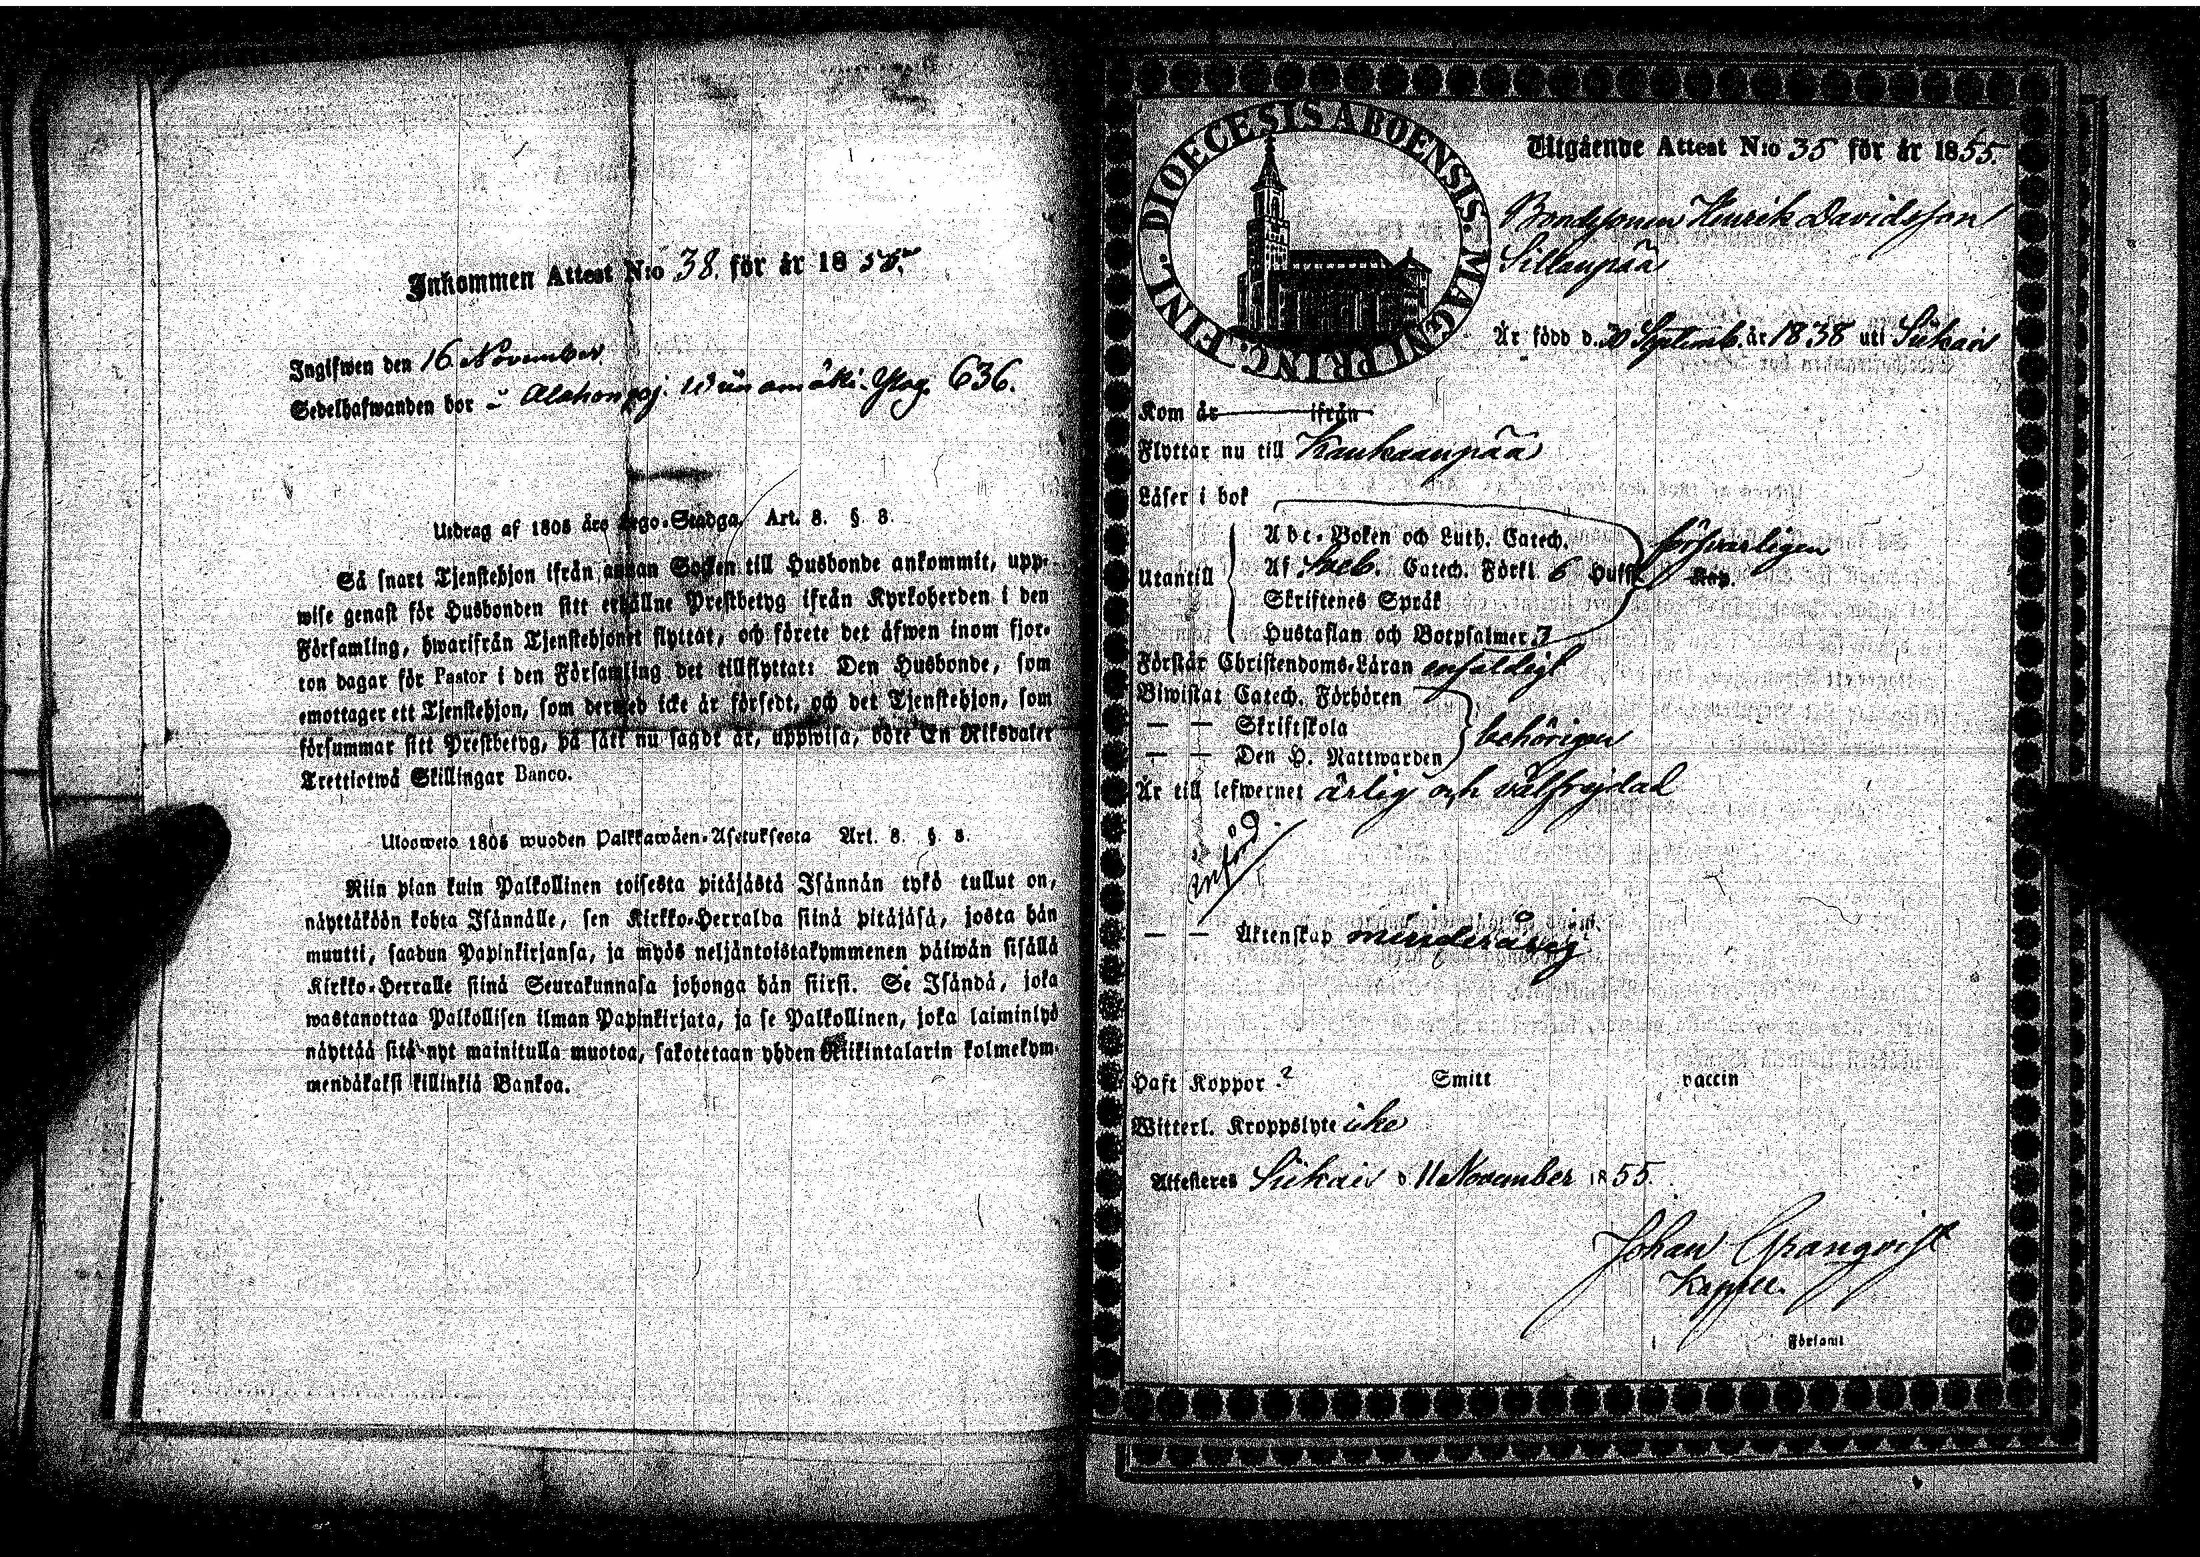 Inkommen Attest N:o 38. för år 1855.
Ingifwen den 16 November
Sedelhafwanden bor i Alahonkoj. 636.
Utdrag af 1805 års Lego-Stadga Art. 8. § 3.
Så snart Tjenstehjon ifrån annan Socken till Husbonde ankommit, upp-
wise genast för Husbonden sitt erhållne Prestbetyg ifrån Kyrkoherden i den
Församling, hwarifrån Tjenstehjonet flyttat, och förete det äfwen inom fjor-
ton dagar för Pastor i den Församling det tillflyttat: Den Husbonde, som
emottager ett Tjenstehjon, som dermed icke är försedt, och det Tjenstehjon, som
försummar sitt Prestbetyg, på sätt nu sagdt är, uppwisa, böte En Riksdaler
Trettiotwå Skillingar Banco.
Ulosweto 1805 wuoden Palkkawäen-Asetuksesta Art. 8. § 3.
Niin pian kuin Palkollinen toisesta pitäjästä Isännän tykö tullut on,
näyttäköön kohta Isännälle, sen Kirkko-Herralda siinä pitäjäsä, josta hän
muutti, saadun Papinkirjansa, ja myös neljäntoistakymmenen päiwän sisällä
Kirkko-Herralle siinä Seurakunnasa johonga hän siirsi. Se Isändä, joka
wastanottaa Palkollisen ilman Papinkirjata, ja se Palkollinen, joka laiminlyö
näyttää sitä nyt mainitulla muotoa, sakotetaan yhden Riikintalarin kolmekym-
mendäkaksi killinkiä Bankoa.
DIOECESIS ABOENSIS. MAGNI PRINC. FINL.
Utgående Attest N:o 35 för år 1855.
Bondesonen Henrik Davidsson
Sillanpää
Är född d. 30 Septemb. år 1838 uti Siikais
Kom år ifrån
Flyttar nu till Kankaanpää
Läser i bok
Utantill
Abc-Boken och Luth. Catech.
Af Sveb. Catech. Förkl 6 Hufst.
Skriftenes Språk
Hustaflan och Botpsalmer 7
försvarligen
Förstår Christendoms-Läran enfaldigt
Biwistat Catech. Förhören
— — Skriftskola
— — Den H. Nattwarden
behörigen
Är till lefwernet ärlig och välfrejdad
införd.
— — Äktenskap minderårig.
Haft Koppor ? Smitt vaccin
Witterl. Kroppslyte icke
Attesteres Siikais d 11 November 1855.
Johan Granqvist
Kappell.
i Församl